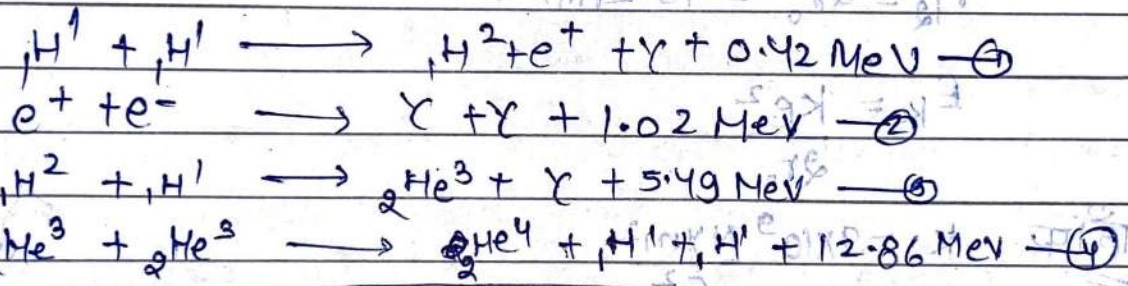 ₁H¹ + ₁H¹ ⟶ ₁H² + e⁺ + γ + 0.42 MeV —①
e⁺ + e⁻ ⟶ γ + γ + 1.02 MeV —②
₁H² + ₁H¹ ⟶ ₂He³ + γ + 5.49 MeV —③
He³ + ₂He³ ⟶ ₂He⁴ + ₁H¹ + ₁H¹ + 12.86 MeV —④